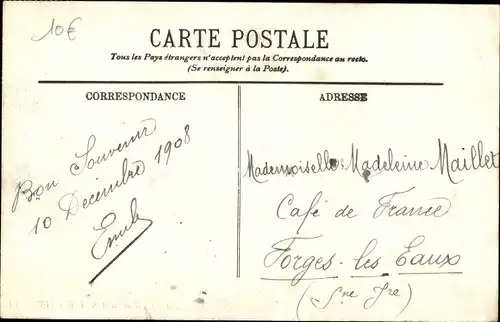 10€
CARTE POSTALE
Tous les Pays étrangers n'acceptent pas la Correspondance au recto.
(Se renseigner à la Poste).
CORRESPONDANCE
Bon Souvenir
10 Decembre 1908
Emile
ADRESSE
Mademoiselle Madeleine Maillet
Café de France
Forges-les Eaux
(Sne Ire)